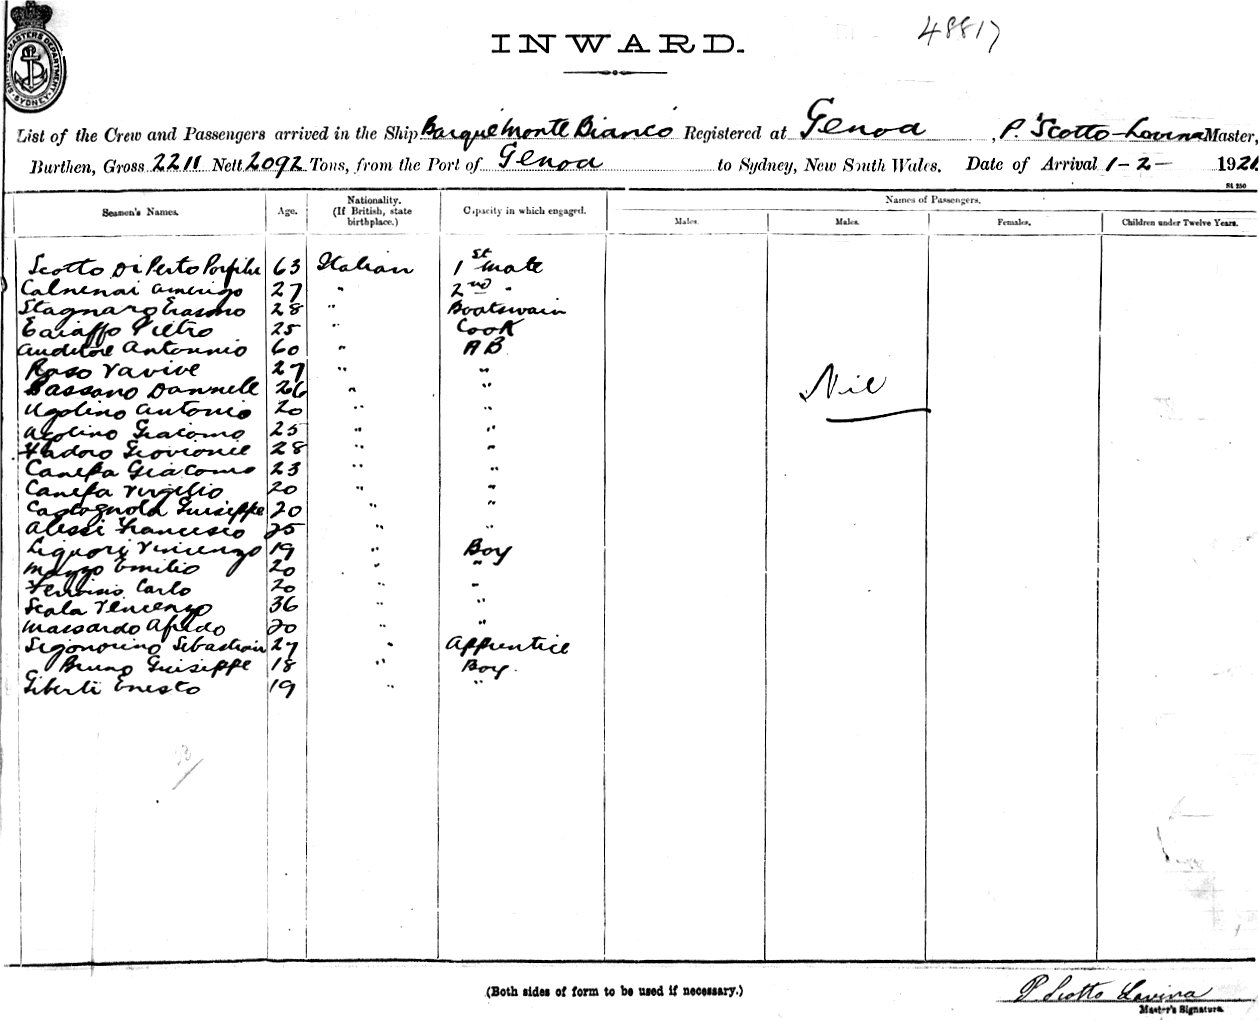 48817
SHIPPING MASTERS DEPARTMENT SYDNEY
INWARD.
List of the Crew and Passengers arrived in the Ship Barque Monte Bianco Registered at Genoa, P. Scotto-Lavina Master,
Burthen, Gross 2211 Nett 2092 Tons, from the Port of Genoa to Sydney, New South Wales. Date of Arrival 1-2- 1921
St 250
Seamen's Names. Age. Nationality. (If British, state birthplace.) Capacity in which engaged. Names of Passengers.
Males. Males. Females. Children under Twelve Years.
Scotto Di Perto 63 Italian 1st Mate
Amerigo 27 " 2nd "
Stagnaro Erasmo 28 " Boatswain
Pietro 25 " Cook
Auditore Antonnio 60 " AB
Raso 27 " "
Bassano Dannele 26 " "
Nil
Ugolino Antonio 20 " "
Giacomo 25 " "
28 " "
Canepa Giacomo 23 " "
Canepa Virgilio 20 " "
Castagnola Guiseppe 20 " "
Alessi Francesco 25 " "
Liguori Vincenzo 19 " Boy
Mazzo Emilio 20 " "
Carlo 20 " "
Scala Vencenzo 36 " "
Massardo Afredo 20 " "
Sebastian 27 " Apprentice
Bruno Guiseppe 18 " Boy.
Giberti Enesto 19 " "
(Both sides of form to be used if necessary.)
P Scotto Lavina
Master's Signature.